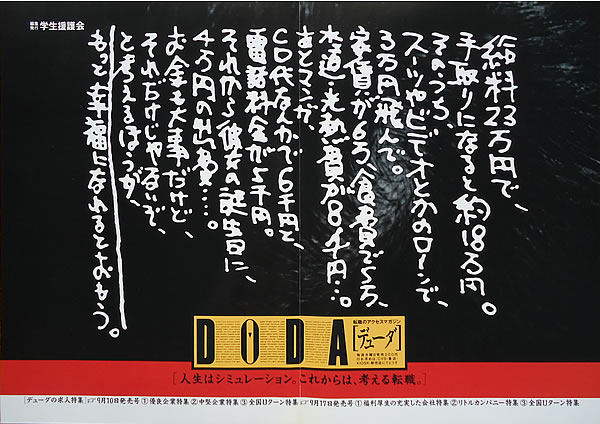 編集
発行 学生援護会
給料23万円で、
手取りになると約18万円。
そのうち、
スーツやビデオとかのローンで、
3万円飛んで。
家賃が6万、食費で5万、
水道・光熱費が8千円…。
あとマンガ、
CD代なんかで6千円と、
電話料金が5千円。
それから彼女の誕生日に、
4万円の出費…。
お金も大事だけど、
それだけじゃないぞ、
と考えるほうが、
もっと幸福になれるとおもう。
DODA
転職のアクセスマガジン
[デューダ]
毎週水曜日発売200円
[人生はシミュレーション。これからは、考える転職。]
[デューダの求人特集]☞9月10日発売号①優良企業特集②中堅企業特集③全国Uターン特集☞9月17日発売号①福利厚生の充実した会社特集②リトルカンパニー特集③全国Uターン特集